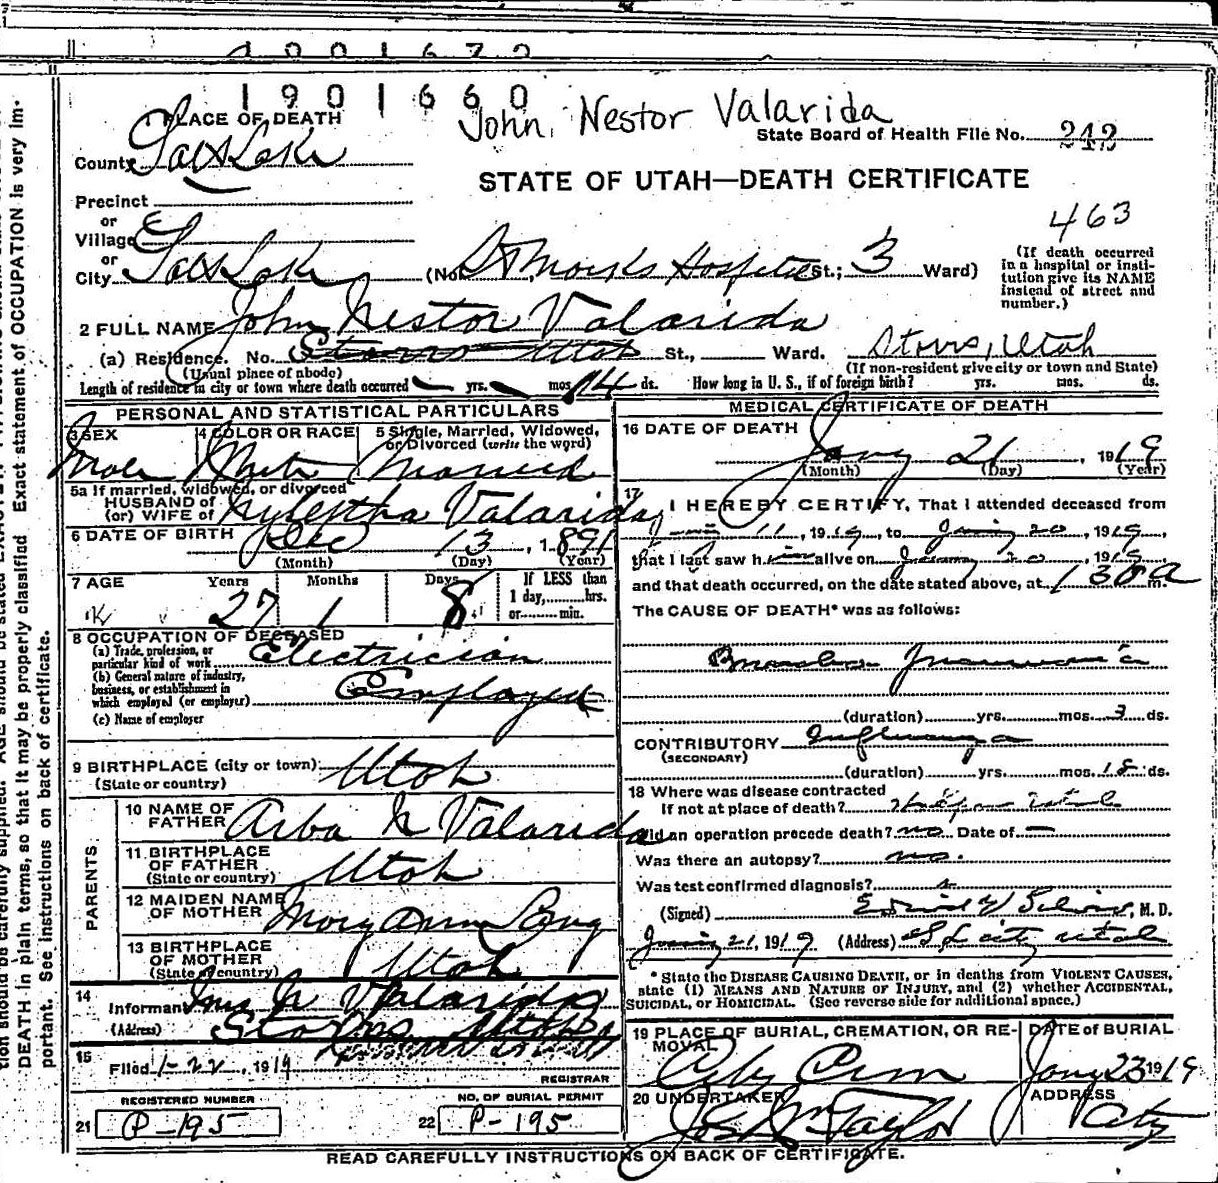 1901660
John Nestor Valarida
1 PLACE OF DEATH
State Board of Health File No. 242
County Salt Lake
STATE OF UTAH—DEATH CERTIFICATE
Precinct
or
463
Village
or
City Salt Lake (No. St Marks Hospital St.; 3 Ward)
(If death occurred
in a hospital or insti-
tution give its NAME
instead of street and
number.)
2 FULL NAME John Nestor Valarida
(a) Residence. No. Storrs Utah St., Ward. Storrs, Utah
(Usual place of abode) (If non-resident give city or town and State)
Length of residence in city or town where death occurred yrs. mos. 14 ds. How long in U. S., if of foreign birth? yrs. mos. ds.
PERSONAL AND STATISTICAL PARTICULARS
3 SEX 4 COLOR OR RACE 5 Single, Married, Widowed,
or Divorced (write the word)
Male White Married
5a If married, widowed, or divorced
HUSBAND of
(or) WIFE of Valarida
6 DATE OF BIRTH Dec 13, 1891
(Month) (Day) (Year)
7 AGE Years Months Days If LESS than
1 day, hrs.
27 1 8 or min.
8 OCCUPATION OF DECEASED
(a) Trade, profession, or
particular kind of work Electrician
(b) General nature of industry,
business, or establishment in
which employed (or employer) Employee
(c) Name of employer
9 BIRTHPLACE (city or town) Utah
(State or country)
PARENTS
10 NAME OF
FATHER Arba N Valarida
11 BIRTHPLACE
OF FATHER
(State or country) Utah
12 MAIDEN NAME
OF MOTHER Mary Ann
13 BIRTHPLACE
OF MOTHER
(State or country) Utah
14
Informant N Valarida
(Address) Storrs Utah
15
Filed 1-22, 1919
REGISTRAR
REGISTERED NUMBER NO. OF BURIAL PERMIT
21 P-195 22 P-195
MEDICAL CERTIFICATE OF DEATH
16 DATE OF DEATH
Jany 21, 1919
(Month) (Day) (Year)
17
I HEREBY CERTIFY, That I attended deceased from
11, 1919, to Jany 20, 1919,
that I last saw him alive on Jany 20, 1919,
and that death occurred, on the date stated above, at 130 a m.
The CAUSE OF DEATH* was as follows:
Pneumonia
(duration) yrs. mos. 3 ds.
CONTRIBUTORY Influenza
(SECONDARY)
(duration) yrs. mos. 18 ds.
18 Where was disease contracted
If not at place of death? Utah
Did an operation precede death? no Date of —
Was there an autopsy? no.
Was test confirmed diagnosis?
(Signed) M. D.
Jany 21, 1919 (Address) S L city Utah
*State the DISEASE CAUSING DEATH, or in deaths from VIOLENT CAUSES,
state (1) MEANS AND NATURE OF INJURY, and (2) whether ACCIDENTAL,
SUICIDAL, OR HOMICIDAL. (See reverse side for additional space.)
19 PLACE OF BURIAL, CREMATION, OR RE-
MOVAL
City Cem
DATE of BURIAL
Jany 23 1919
20 UNDERTAKER
Jos Wm Taylor
ADDRESS
City
READ CAREFULLY INSTRUCTIONS ON BACK OF CERTIFICATE.
DEATH in plain terms, so that it may be properly classified. Exact statement of OCCUPATION is very im-
portant. See instructions on back of certificate.